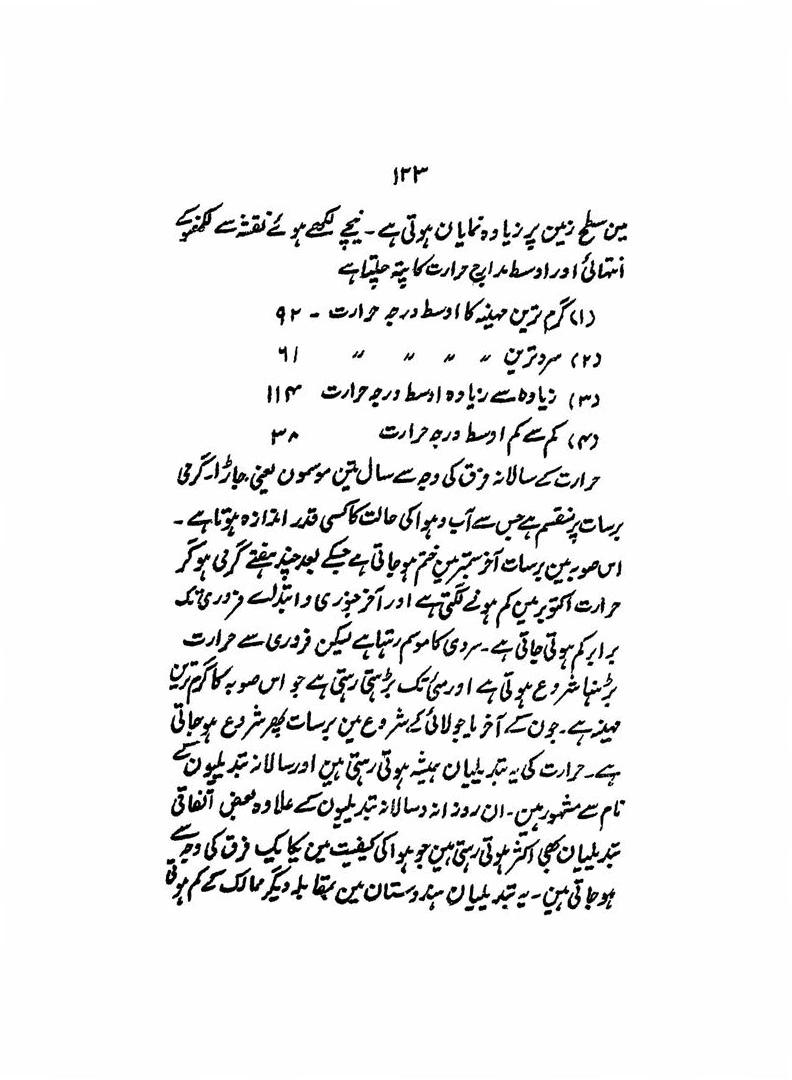 ۱۲۳
مین سطح زمین پر زیادہ نمایان ہوتی ہے۔ نیچے لکھے ہوئے نقشہ سے لکھنؤ کے
انتہائی اور اوسط مدارج حرارت کا پتہ چلتا ہے
(۱) گرم ترین مہینہ کا اوسط درجہ حرارت ۔ ۹۲
(۲) سرد ترین 〃 〃 〃 〃 ۶۱
(۳) زیادہ سے زیادہ اوسط درجہ حرارت ۱۱۴
(۴) کم سے کم اوسط درجہ حرارت ۳۸
حرارت کے سالانہ فرق کی وجہ سے سال تین موسمون یعنی جاڑا۔ گرمی
برسات پر منقسم ہے جس سے آب و ہوا کی حالت کا کسی قدر اندازہ ہوتا ہے۔
اس صوبہ مین برسات آخر ستمبر مین ختم ہو جاتی ہے جسکے بعد چند ہفتے گرمی ہو کر
حرارت اکتوبر مین کم ہونے لگتی ہے اور آخر جنوری و ابتدائے فروری تک
برابر کم ہوتی جاتی ہے۔ سردی کا موسم رہتا ہے لیکن فروری سے حرارت
بڑہنا شروع ہوتی ہے اور مئی تک بڑہتی رہتی ہے جو اس صوبہ کا گرم ترین
مہینہ ہے۔ جون کے آخر یا جولائی کے شروع مین برسات پھر شروع ہو جاتی
ہے۔ حرارت کی یہ تبدیلیان ہمیشہ ہوتی رہتی ہین اور سالانہ تبدیلیون کے
نام سے مشہور ہین۔ ان روزانہ و سالانہ تبدیلیون کے علاوہ بعض اتفاقی
تبدیلیان بھی اکثر ہوتی رہتی ہین جو ہوا کی کیفیت مین یکایک فرق کی وجہ سے
ہو جاتی ہین۔ یہ تبدیلیان ہندوستان مین بمقابلہ دیگر ممالک کے کم ہوتی